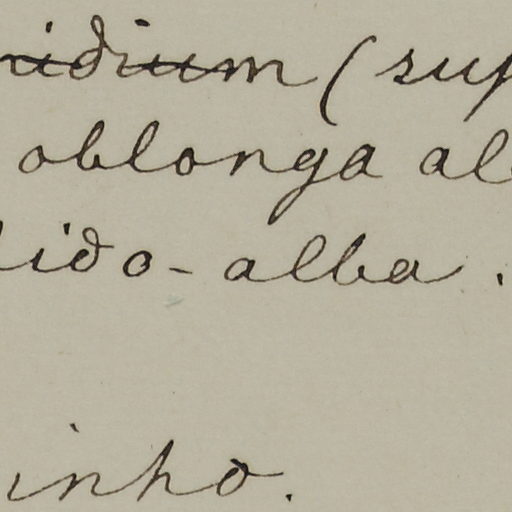 idium (sup
oblonga al
lido-alba.
inho.